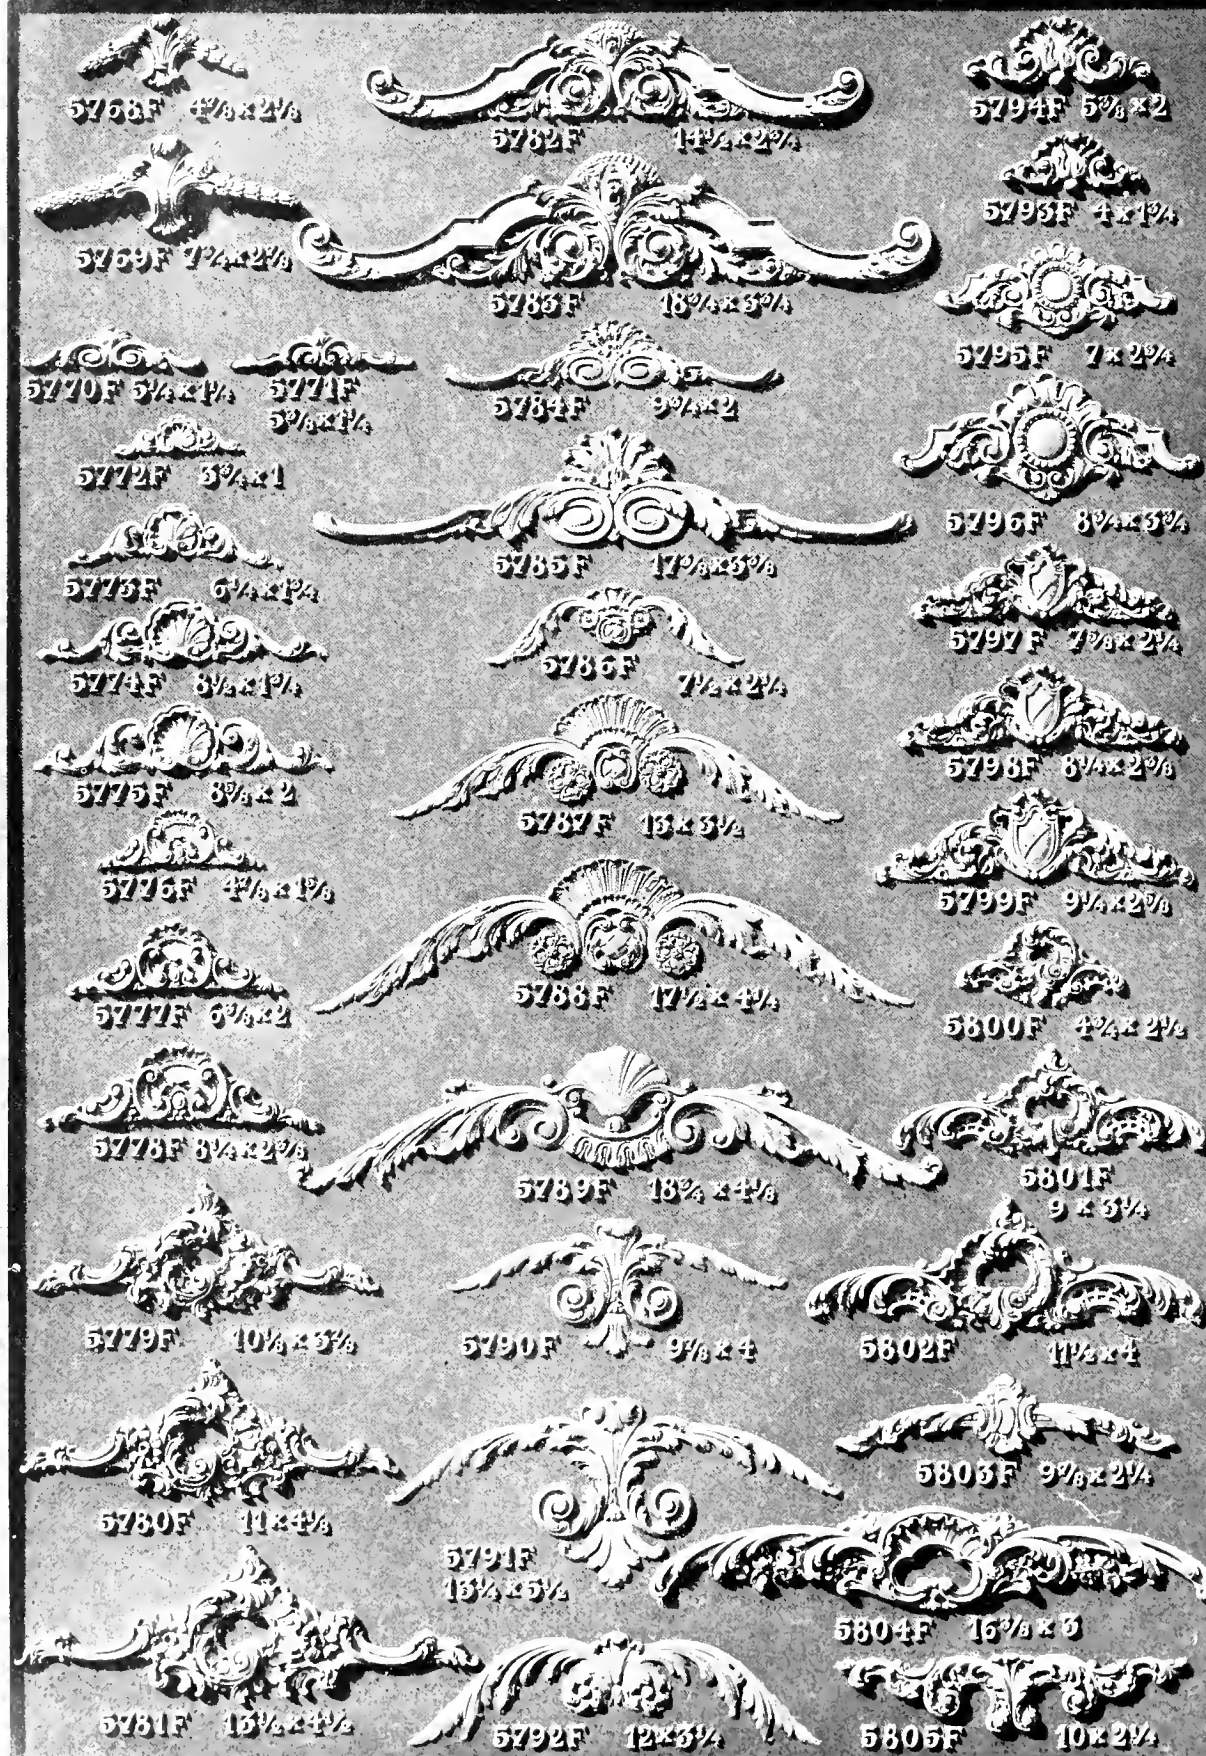 5768F 4⅞x2⅛
5769F 7¾x2⅜
5770F 5¼x1¼
5771F
5⅜x1¼
5772F 3¾x1
5773F 6¼x1¾
5774F 8½x1¾
5775F 8⅝x2
5776F 4⅞x1⅝
5777F 6⅜x2
5778F 8¼x2⅜
5779F 10⅛x3⅞
5780F 11x4⅛
5781F 13½x4½
5782F 14½x2¾
5783F 18¾x3¾
5784F 9¾x2
5785F 17⅜x3⅜
5786F 7½x2¼
5787F 13x3½
5788F 17½x4¼
5789F 18¾x4⅛
5790F 9⅞x4
5791F
13¼x5½
5792F 12x3¼
5794F 5⅜x2
5793F 4x1¾
5795F 7x2¾
5796F 8¾x3¾
5797F 7⅝x2¼
5798F 8¼x2⅜
5799F 9¼x2⅞
5800F 4¾x2½
5801F
9x3¼
5802F 11½x4
5803F 9⅞x2¼
5804F 16⅜x3
5805F 10x2¼